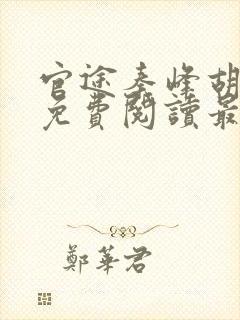 官途秦峰胡
免費閱讀最
鄭華君